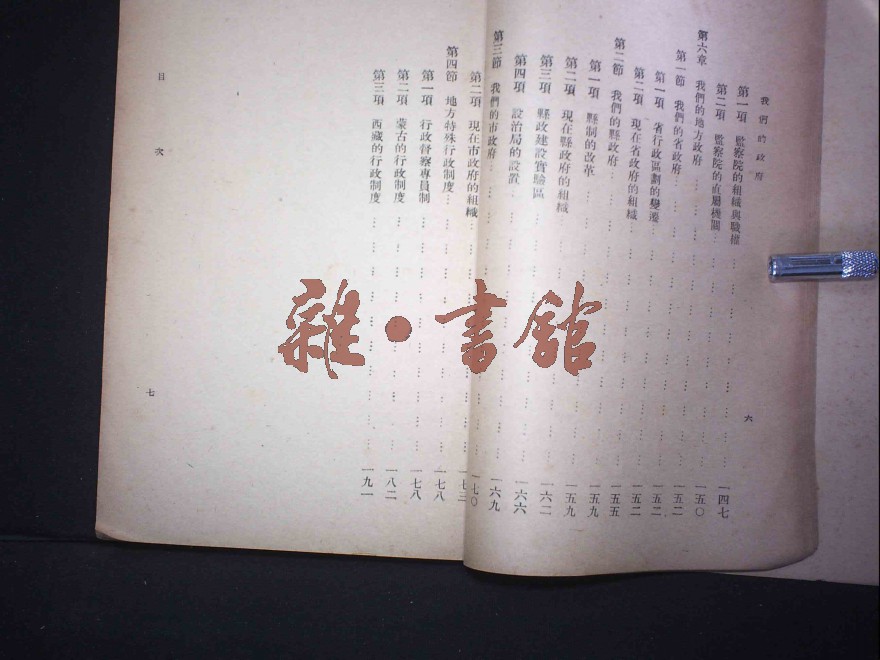 我們的政府
第一項 監察院的組織與職權 一四七
第二項 監察院的直屬機關 一五〇
第六章 我們的地方政府 一五二
第一節 我們的省政府 一五二
第一項 省行政區劃的變遷 一五二
第二項 現在省政府的組織 一五五
第二節 我們的縣政府 一五九
第一項 縣制的改革 一五九
第二項 現在縣政府的組織 一六二
第三項 縣政建設實驗區 一六六
第四項 設治局的設置 一六九
第三節 我們的市政府 一七〇
六
第二項 現在市政府的組織 一七三
第四節 地方特殊行政制度 一七八
第一項 行政督察專員制 一七八
第二項 蒙古的行政制度 一八二
第三項 西藏的行政制度 一九一
目次
七
雜·書館